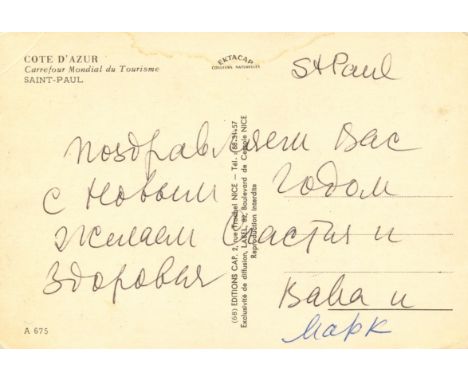 COTE D'AZUR
Carrefour Mondial du Tourisme
SAINT-PAUL
EKTACAP
COULEURS NATURELLES
St Paul
поздравляем Вас
с Новым Годом
Желаем Счастия и
Здоровья
Вава и
Марк
(68) EDITIONS CAP, 2, rue NICE - Tél.
Exclusivité de diffusion, LABEL, Boulevard de Cessole NICE
Reproduction interdite
A 675